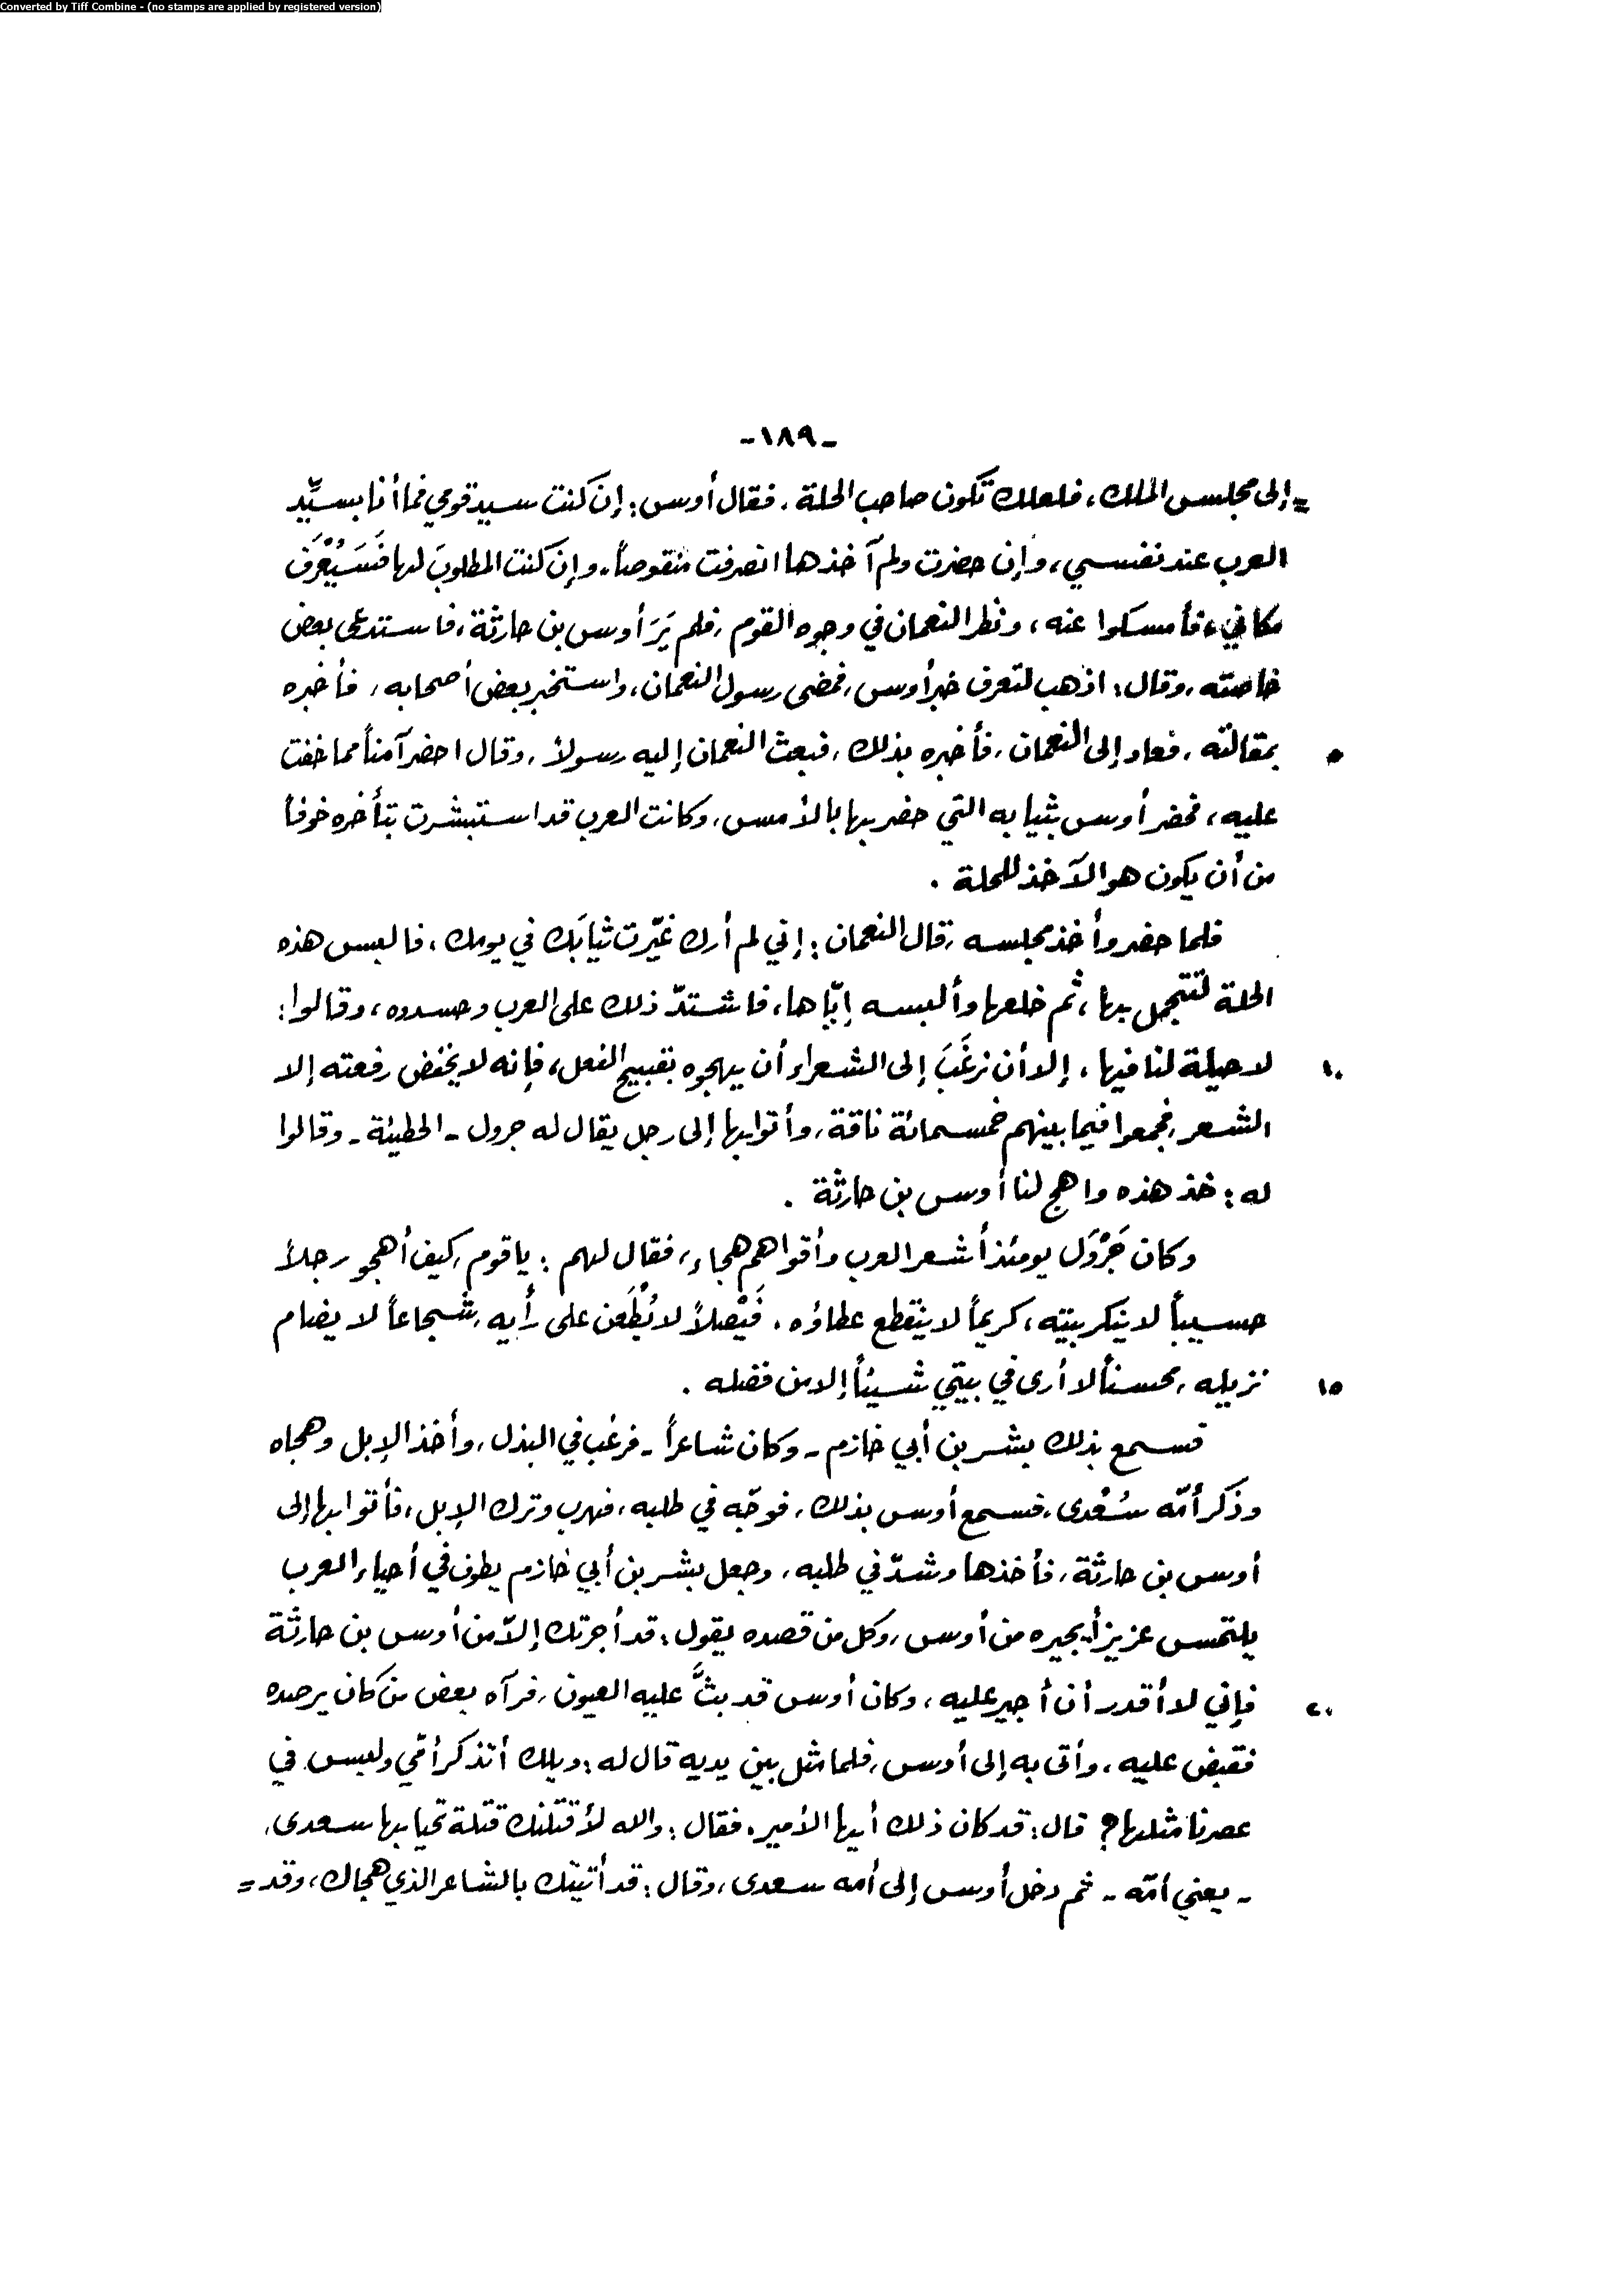 Converted by Tiff Combine - (no stamps are applied by registered version)
-١٨٩-
= إلى مجلس الملك، فلعلك تكون صاحب الحلة. فقال أوس: إن كنت سيد قومي فما أنا بسيِّد
العرب عند نفسي، وإن حضرت ولم آخذها انصرفت منقوصاً. وإن كنت المطلوبَ لها فَسَيُعْرَف
مكاني، فأمسكوا عنه، ونظر النعمان في وجوه القوم، فلم يَرَ أوس بن حارثة، فاستدعى بعض
خاصته، وقال: اذهب لتعرف خبر أوس، فمضى رسول النعمان، واستخبر بعض أصحابه، فأخبره
٥ بمقالته، فعاد إلى النعمان، فأخبره بذلك، فبعث النعمان إليه رسولاً، وقال احضر آمناً مما خفت
عليه، فحضر أوس بثيابه التي حضر بها بالأمس، وكانت العرب قد استبشرت بتأخره خوفاً
من أن يكون هو الآخذ للحلة .
فلما حضر وأخذ مجلسه، قال النعمان: إني لم أرك غيّرت ثيابَك في يومك، فالبس هذه
الحلة لتتجمل بها، ثم خلعها وألبسه إيّاها، فاشتدّ ذلك على العرب وحسدوه، وقالوا:
١٠ لا حيلة لنا فيها، إلا أن نرغَبَ إلى الشعراء أن يهجوه بقبيح الفعل، فإنه لا يخفض رفعته إلا
الشعر، فجمعوا فيما بينهم خمسمائة ناقة، وأتوا بها إلى رجل يقال له جرول - الحطيئة - وقالوا
له: خذ هذه واهج لنا أوس بن حارثة .
وكان جَرْوَل يومئذ أشعر العرب وأقواهم هجاء، فقال لهم: يا قوم، كيف أهجو رجلاً
حسيباً لا ينكر بيته، كريماً لا ينقطع عطاؤه. فَيْصلاً لا يُطْعَن على رأيه، شجاعاً لا يضام
١٥ نزيله، محسناً لا أرى في بيتي شيئاً إلا من فضله .
فسمع بذلك بشر بن أبي خازم - وكان شاعراً - فرغب في البذل، وأخذ الإبل وهجاه
وذكر أمّه سُعْدى، فسمع أوس بذلك، فوجّه في طلبه، فهرب وترك الإبل، فأتوا بها إلى
أوس بن حارثة، فأخذها وشدّ في طلبه، وجعل بشر بن أبي خازم يطوف في أحياء العرب
يلتمس عزيزاً يجيره من أوس، وكل من قصده يقول: قد أجرتك إلاّ من أوس بن حارثة
٢٠ فإني لا أقدر أن أجير عليه، وكان أوس قد بثَّ عليه العيون، فرآه بعض من كان يرصده
فقبض عليه، وأتى به إلى أوس، فلما مثل بين يديه قال له: ويلك أتذكر أمّي وليس في
عصرنا مثلها؟ قال: قد كان ذلك أيها الأمير. فقال: والله لأقتلنك قتلة تحيا بها سعدى،
- يعني أمّه - ثم دخل أوس إلى أمه سعدى، وقال: قد أتيتك بالشاعر الذي هجاك، وقد =